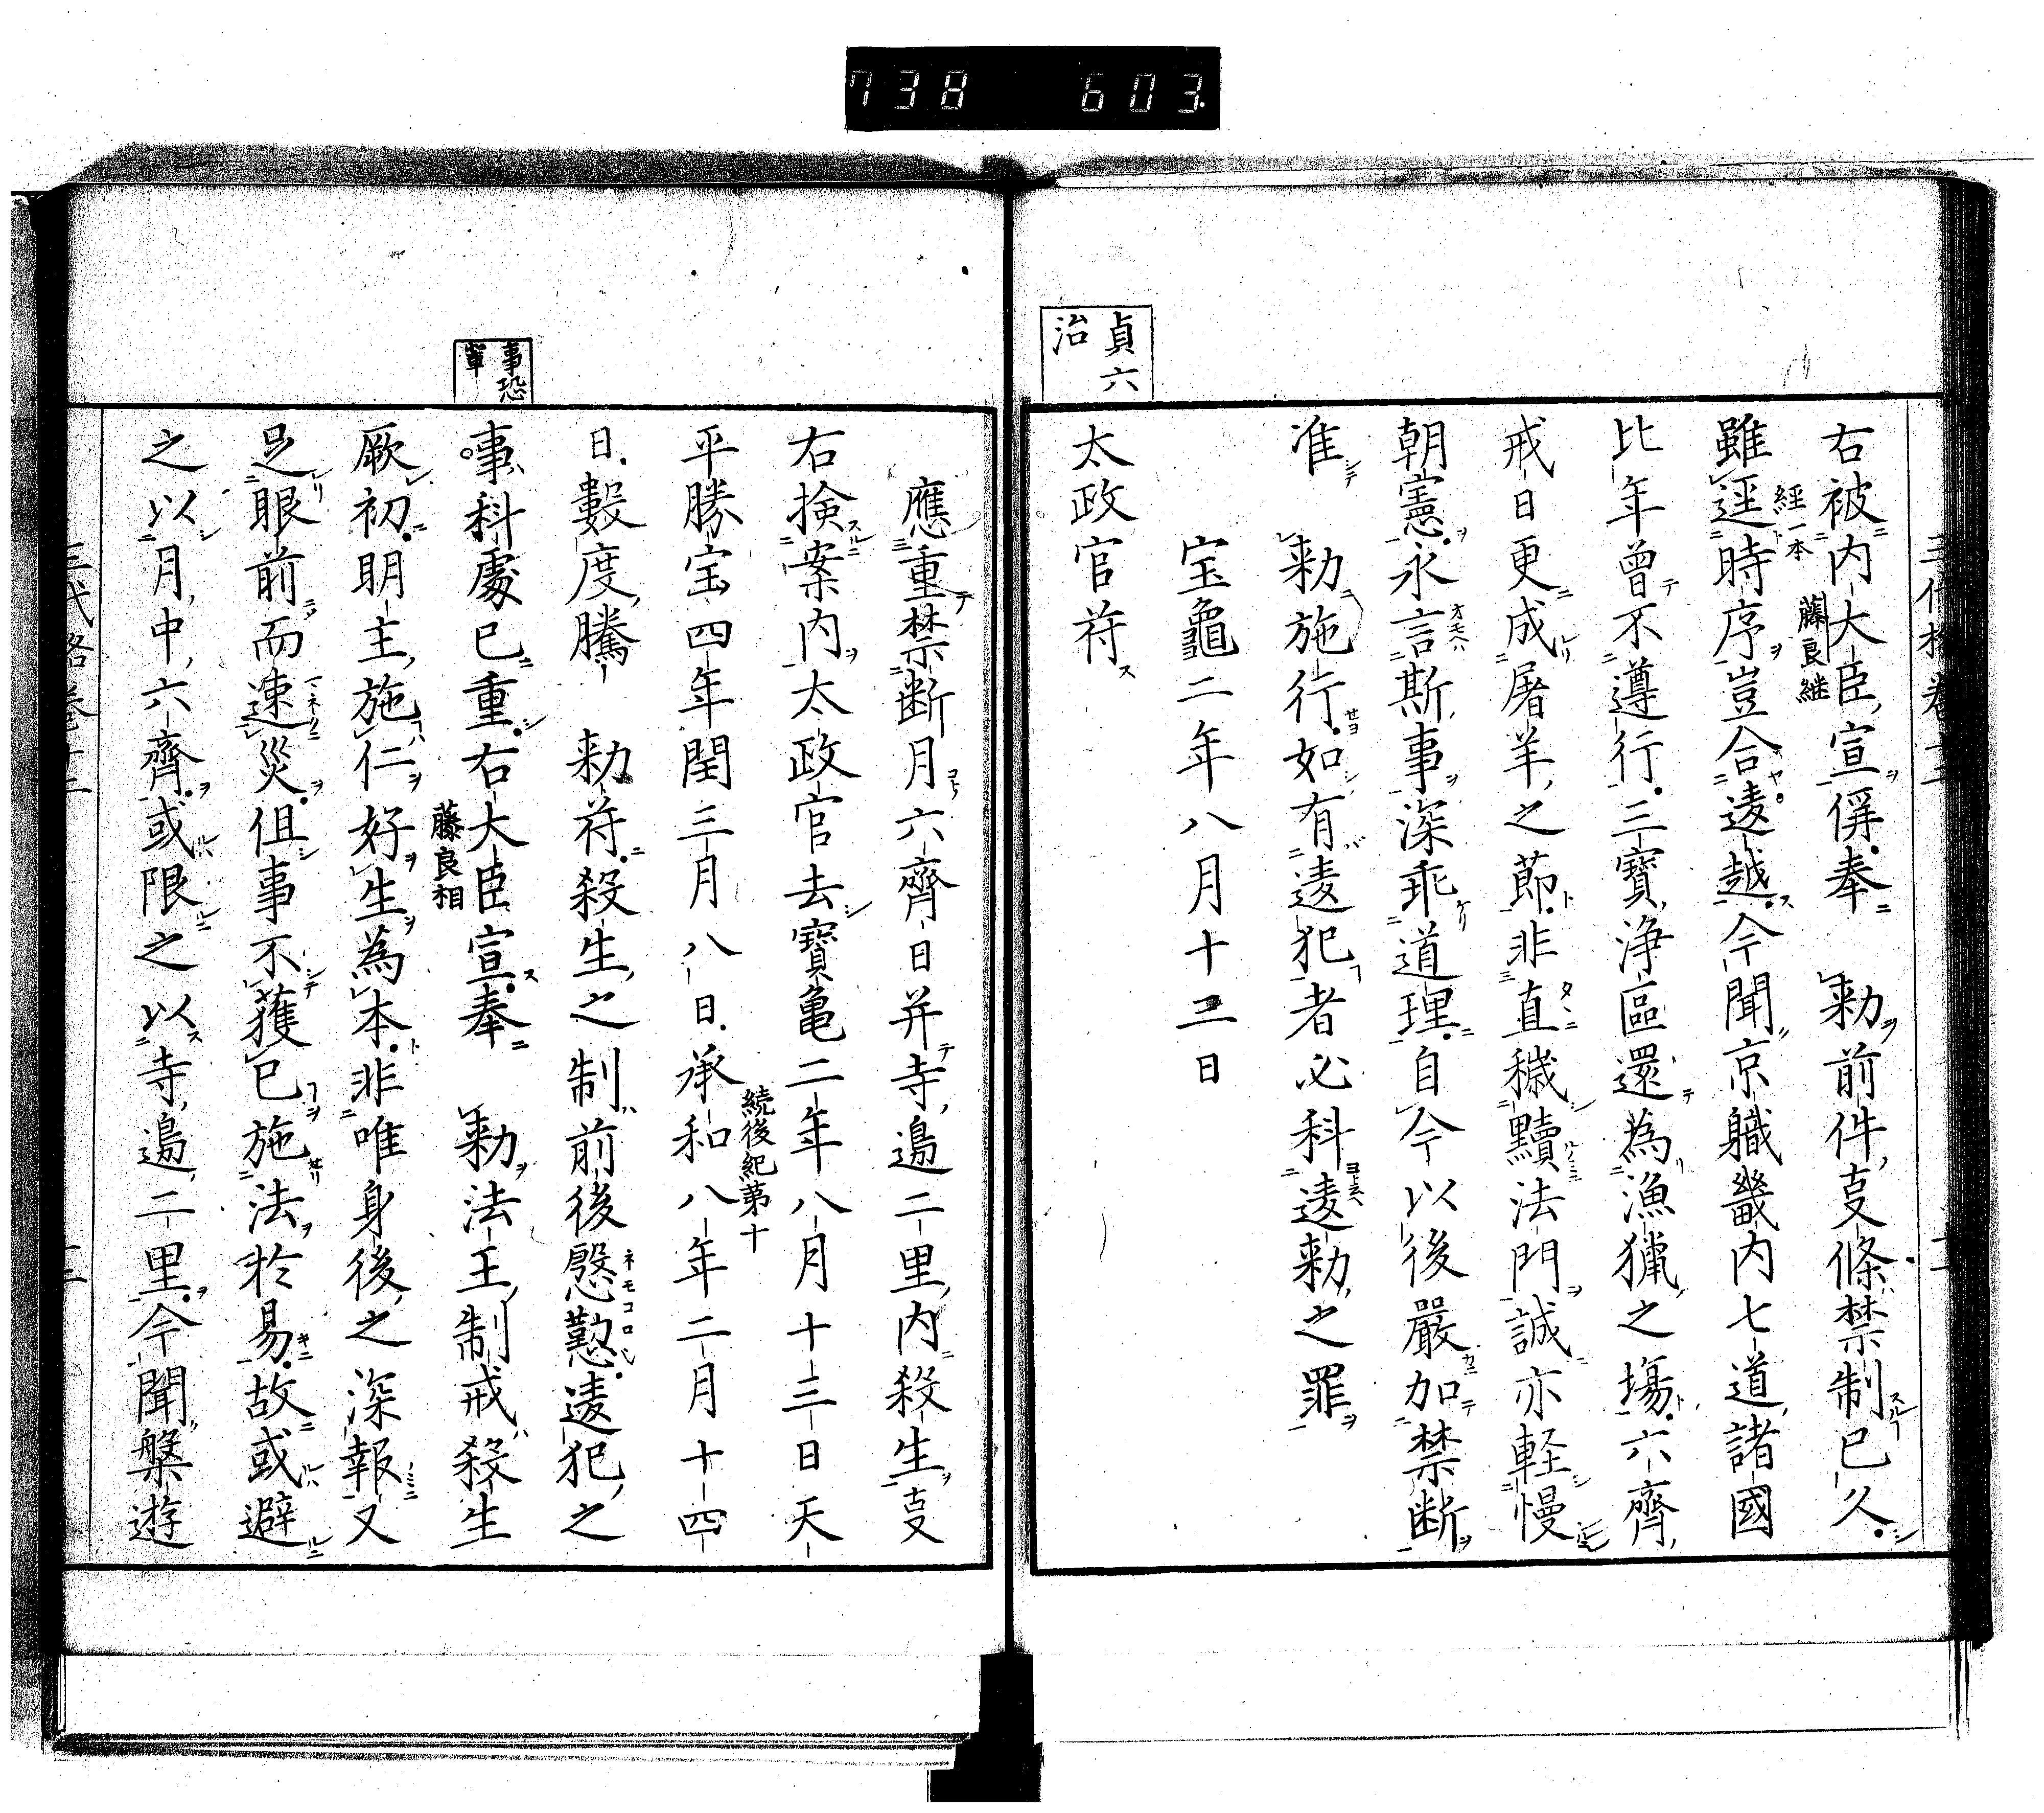 738 603
右被内大臣宣偁奉 勅前件叓條禁制已久
藤良継
雖逕時序豈合逺越今聞京職畿内七道諸國
経一本
比年曽不遵行三寳浄區還為漁獵之場六齊
戒日更成屠羊之莭非直穢黷法門誠亦軽慢
朝憲永言斯事深乖道理自今以後嚴加禁断
准 勅施行如有逺犯者必科逺勅之罪
宝龜二年八月十三日
貞六
治
太政官符
應重禁断月六齊日并寺邉二里内殺生叓
右検案内太政官去寳亀二年八月十三日天
平勝宝四年閏三月八日承和八年二月十四
続後紀苐十
日數度騰 勅符殺生之制前後慇懃逺犯之
事恐
單
事科處已重右大臣宣奉 勅法王制戒殺生
藤良相
厥初明主施仁好生為本非唯身後之深報又
是眼前而速災但事不獲已施法於易故或避
之以月中六齊或限之以寺邉二里今聞槃遊